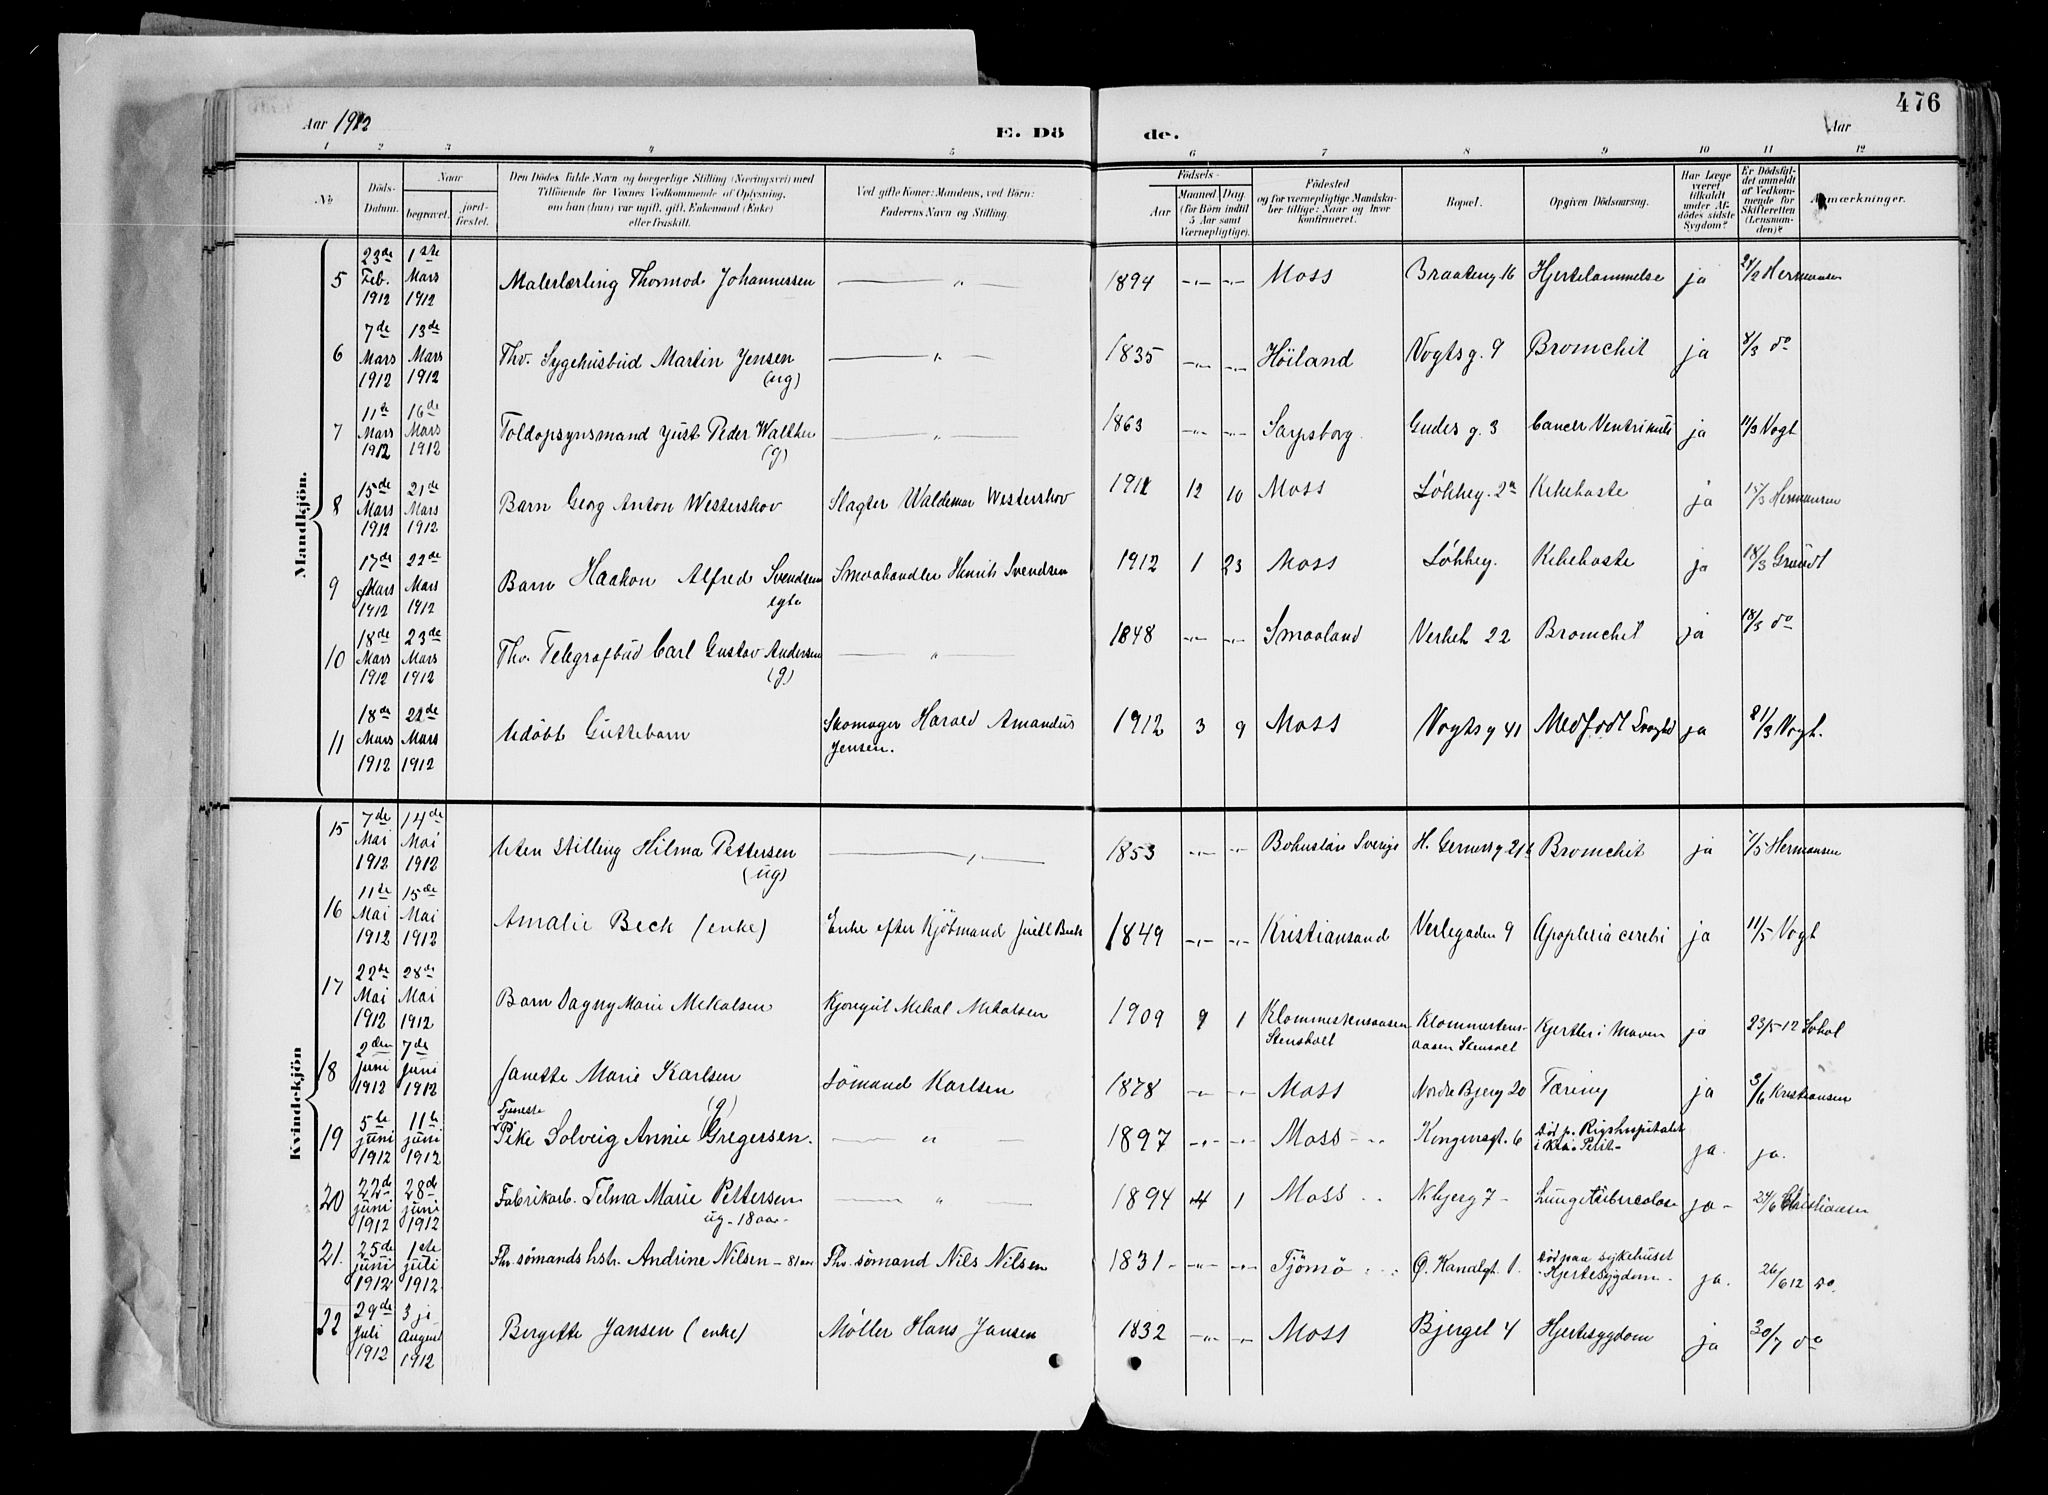 476
Aar 1912
E. Dö
de.
Aar
1 2 3 4 5
6 7 8 9 10 11 12
No
Döds-Datum.
Naar
begravet.
jord-fæstet.
Den Dödes fulde Navn og borgerlige Stilling (Næringsvei) med
Tilföiende for Voxnes Vedkommende af Oplysning,
om han (hun) var ugift, gift, Enkemand (Enke)
eller fraskilt.
Ved gifte Koner: Mandens, ved Börn:
Faderens Navn og Stilling.
Födsels-
Aar
Maaned Dag
(for Börn indtil
5 Aar samt
Værnepligtige).
Födested
og for værnepligtige Mandska-
ber tillige: Naar og hvor
konfirmeret.
Bopæl.
Opgiven Dödsaarsag.
Har Læge
været
tilkaldt
under Af-
dödes sidste
Sygdom?
Er Dödsfal-
det anmeldt
af Vedkom-
mende for
Skifteretten
(Lensman-
den)?
Anmærkninger.
Mandkjön.
5 23de Feb. 1912 1ste Mars 1912 Malerlærling Thormod Johannessen — „ — 1894 -„- -„- Moss Braateng 16 Hjertelammelse ja 24/2 Hermansen
6 7de Mars 1912 13de Mars 1912 Fhv. Sygehusbud Martin Jensen (ug) — „ — 1835 -„- -„- Höiland Vogtsg. 9 Bronchit ja 8/3 do
7 11te Mars 1912 16de Mars 1912 Toldopsynsmand Just Peder Walther (g) — „ — 1863 -„- -„- Sarpsborg Gudes g. 3 Cancer Ventrikuli ja 11/3 Vogt
8 15de Mars 1912 21de Mars 1912 Barn Georg Anton Westerskov Slagter Waldemar Westerskov 1911 12 10 Moss Løkkeg. 2a Kikhoste ja 15/3 Hermansen
9 17de Mars 1912 22de Mars 1912 Barn Haakon Alfred Svendsen egte Smaahandler Henrik Svendsen 1912 1 23 Moss Løkkeg. Kikhoste ja 18/3 Grundt
10 18de Mars 1912 23de Mars 1912 Fhv. Telegrafbud Carl Gustav Andersen (g) — „ — 1848 -„- -„- Smaaland Verket 22 Bronchit ja 18/3 do
11 18de Mars 1912 22de Mars 1912 Udöbt Guttebarn Skomager Harald Amandus Jensen. 1912 3 9 Moss Vogtsg 41 Medfödt Svaghed ja 21/3 Vogt.
Kvindekjön
15 7de Mai 1912 14de Mai 1912 Uten Stilling Hilma Pettersen (ug) — „ — 1853 -„- -„- Bohuslän Sverige H. Gernersg 21b Bronchit ja 7/5 Hermansen
16 11te Mai 1912 15de Mai 1912 Amalie Beck (enke) Enke efter Kjöbmand Juell Beck 1849 -„- -„- Kristiansand Verlegaden 9 Apoplexia cerebri ja 11/5 Vogt
17 22de Mai 1912 28de Mai 1912 Barn Dagny Marie Mekalsen Kjöregut Mekal Mekalsen 1909 9 1 Klommestensaasen Stensholt Klommestensaasen Stensolt Kjertler i Maven ja 23/5-12 Sohol
18 2den Juni 1912 7de Juni 1912 Janette Marie Karlsen (g) Sömand Karlsen 1878 -„- -„- Moss Nordre Bjerg 20 Tæring ja 3/6 Kristiansen
19 5te juni 1912 11te juni 1912 Tjeneste Pike Solveig Annie Gregersen. — „ — 1897 -„- -„- Moss Kongensgt. 6 Död p. Rigshospitalet i Kra. Perit- ja. ja.
20 22de juni 1912 28de juni 1912 Fabrikarb. Telma Marie Pettersen ug - 18 aar - — „ — 1894 4 1 Moss N bjerg 7 - Lungetuberculose ja- 24/6 Christiansen
21. 25de juni 1912 1ste juli 1912 Fhv. sömands hstr. Andrine Nilsen - 81 aar Fhv. sömand Nils Nilsen 1831 -„- -„- Tjömö Ø. Kanalgt. 1. Död paa sykehuset - Hjertesygdom - ja. 26/6 12 do.
22 29de Juli 1912 3 je August 1912 Bergitte Jansen (enke) Møller Hans Jansen 1832 -„- -„- Moss Bjerget 4 Hjertesygdom ja 30/7 do